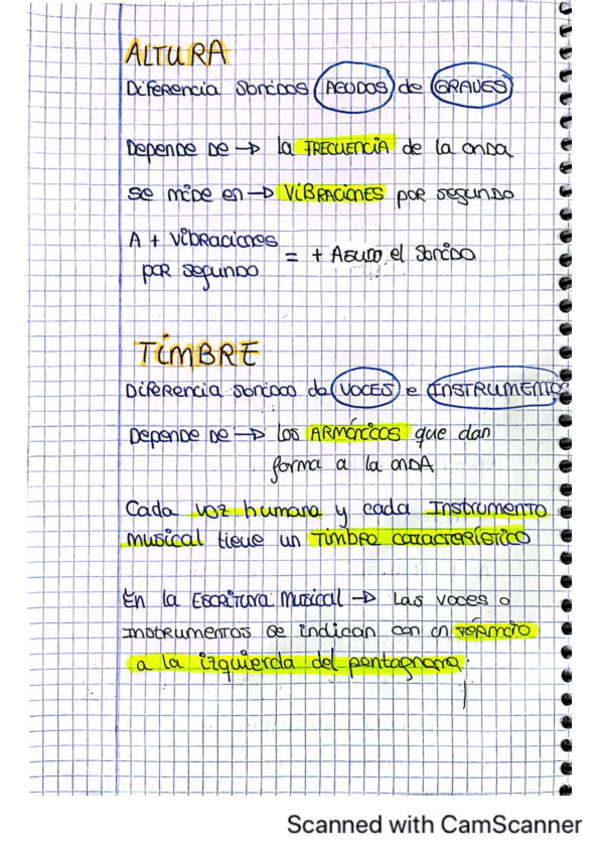 ALTURA
Diferencia sonidos AGUDOS de GRAVES
Depende de → la FRECUENCIA de la onda
se mide en → VIBRACIONES por segundo
A + vibraciones
por segundo = + AGUDO el sonido
TIMBRE
Diferencia sonido de VOCES e INSTRUMENTOS
Depende de → los ARMÓNICOS que dan
forma a la onda
Cada voz humana y cada Instrumento
musical tiene un Timbre característico
En la Escritura Musical → Las voces o
instrumentos se indican con un término
a la izquierda del pentagrama.
Scanned with CamScanner